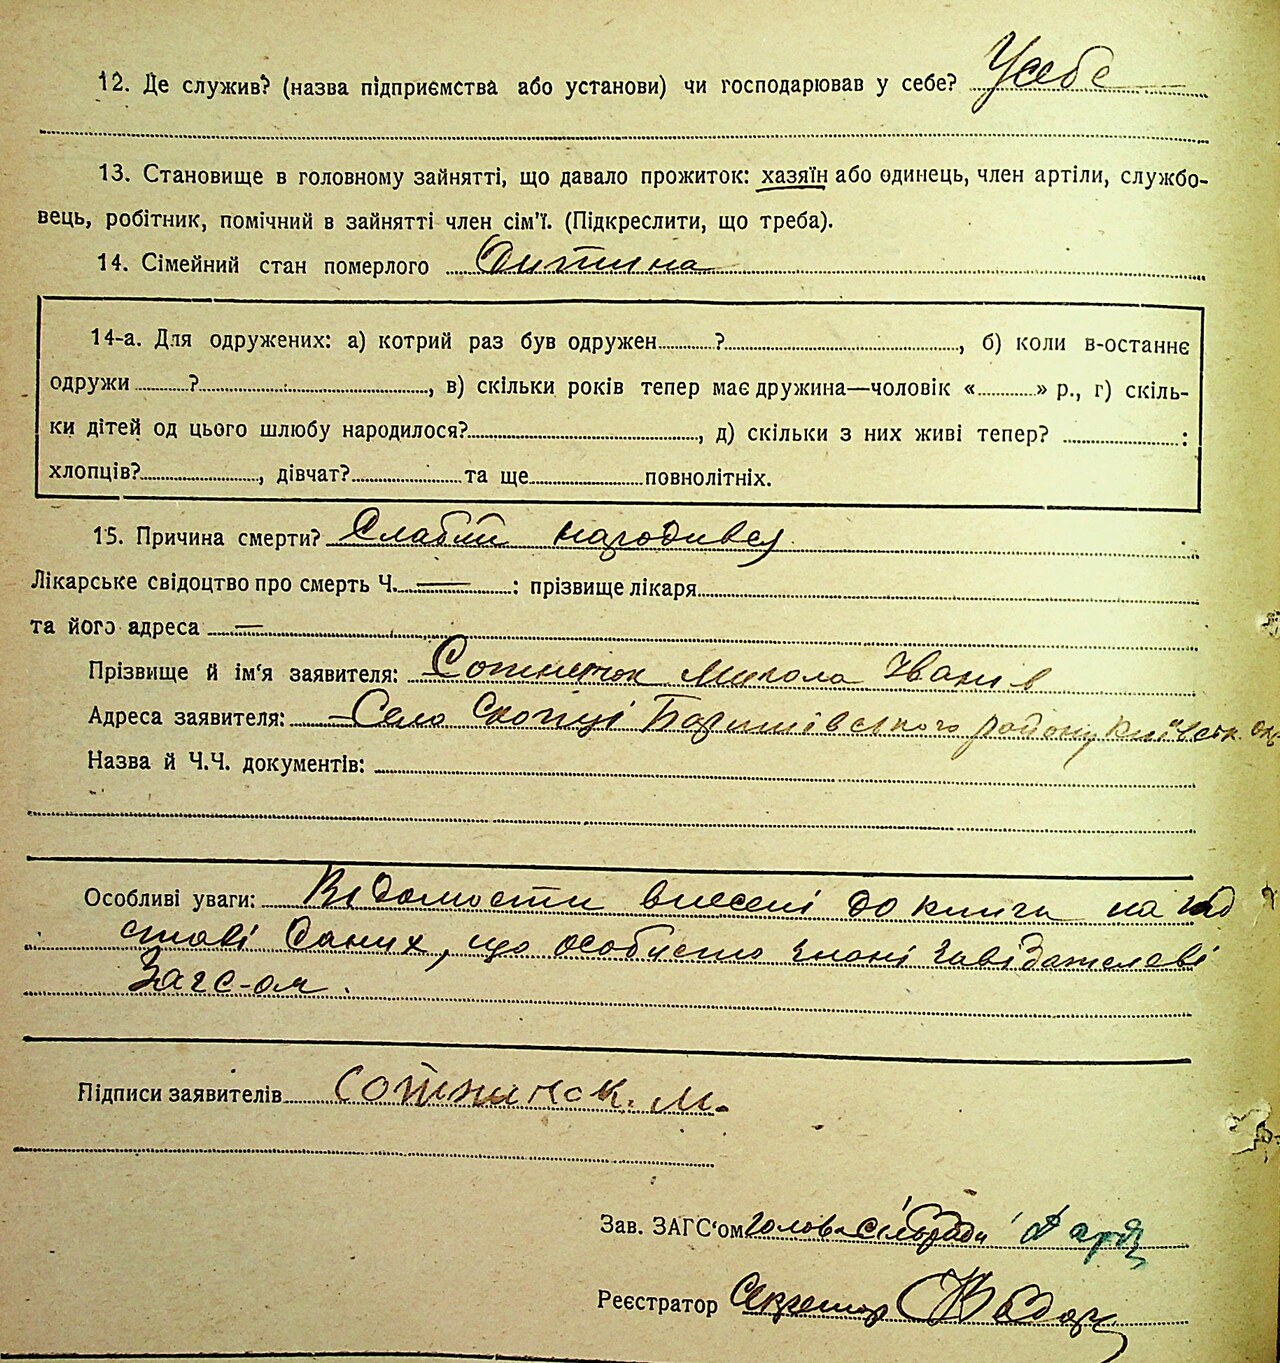 12. Де служив? (назва підприємства або установи) чи господарював у себе? У себе
13. Становище в головному зайнятті, що давало прожиток: хазяїн або одинець, член артіли, службо-
вець, робітник, помічний в зайнятті член сім'ї. (Підкреслити, що треба).
14. Сімейний стан померлого Дитина
14-а. Для одружених: а) котрий раз був одружен ? , б) коли в-останнє
одружи ? , в) скільки років тепер має дружина—чоловік « » р., г) скіль-
ки дітей од цього шлюбу народилося? , д) скільки з них живі тепер? :
хлопців? , дівчат? та ще повнолітніх.
15. Причина смерти? Слабий народився
Лікарське свідоцтво про смерть Ч. — : прізвище лікаря
та його адреса —
Прізвище й ім'я заявителя: Сотниток Микола Іванів
Адреса заявителя: Село Скопці Баришівського району Київськ. ок.
Назва й Ч.Ч. документів:
Особливі уваги: Відомости внесені до книги на під
ставі даних, що особисто знані завідателеві
Загс-ом.
Підписи заявителів М.
Зав. ЗАГС'ом Голова сільради
Реєстратор Секретар